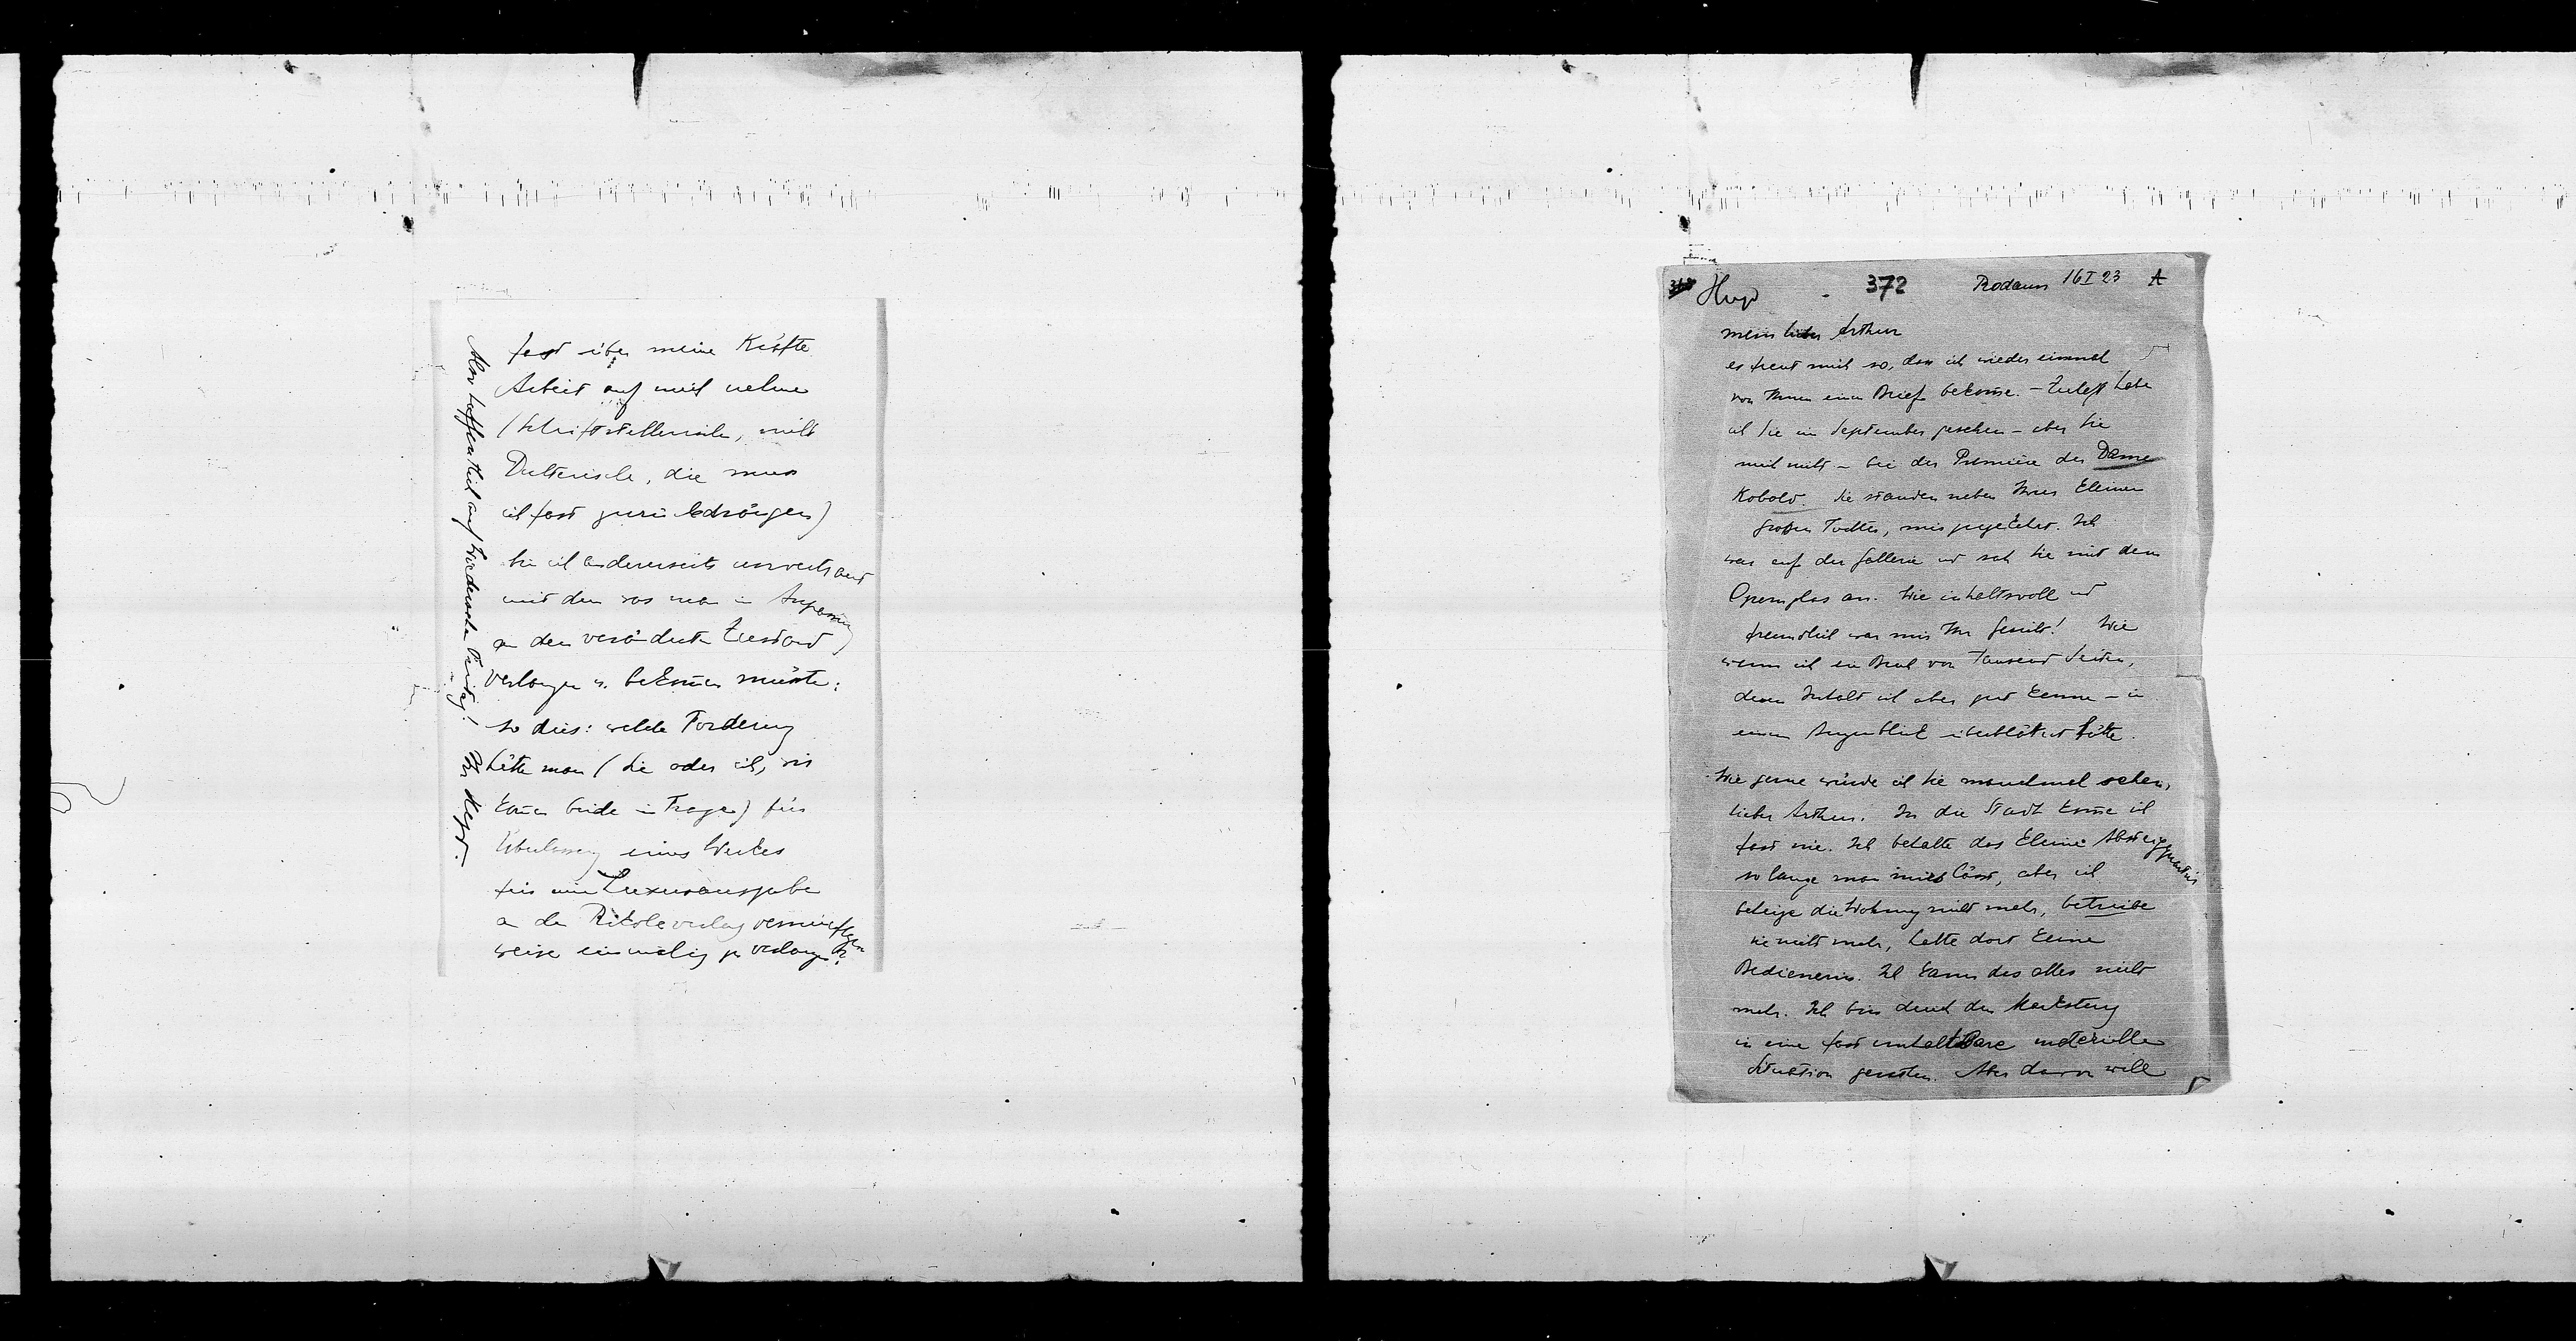 fast über meine Kräfte
Arbeit auf mich nehme
(Schriftstellerische, nicht
Dichterische, die muss
ich fast zurückdrängen)
bin ich andererseits unvertraut
mit dem was man in Anpassung
an den veränderten Zustand
verlangen u. bekommen müsste:
so dies: welche Forderung
hätte man (Sie oder ich, wir
kom̄en beide in Frage) für
Überlassung eines Werkes
für eine Luxusausgabe
an den Rikolaverlag vernünftiger
weise einmalig zu verlangen?
Also hoffentlich auf Wiedersehen Freitag! Ihr Hugo.
Hugo 372 Rodaun 16 I 23 A
mein lieber Arthur
es freut mich so, dass ich wieder einmal
von Ihnen einen Brief bekom̄e. – Zuletzt habe
ich Sie im September gesehen – aber Sie
mich nicht – bei der Première der Dame
Kobold. Sie standen neben Ihrer kleinen
großen Tochter, mir zugekehrt. Ich
war auf der Gallerie und sah Sie mit dem
Opernglas an. Wie inhaltsvoll und
freundlich war mir Ihr Gesicht! Wie
wenn ich ein Buch von tausend Seiten,
deren Inhalt ich aber gut kenne – in
einem Augenblick überblättert hätte.
Wie gerne würde ich Sie manchmal sehen,
lieber Arthur. In die Stadt kom̄e ich
fast nie. Ich behalte das kleine Absteigquartier
so lange man mirs lässt, aber ich
beheize die Wohnung nicht mehr, betreibe
sie nicht mehr, halte dort keine
Bedienerin. Ich kann das alles nicht
mehr. Ich bin durch den Marksturz
in eine fast unhaltbare materielle
Situation geraten. Aber davon will